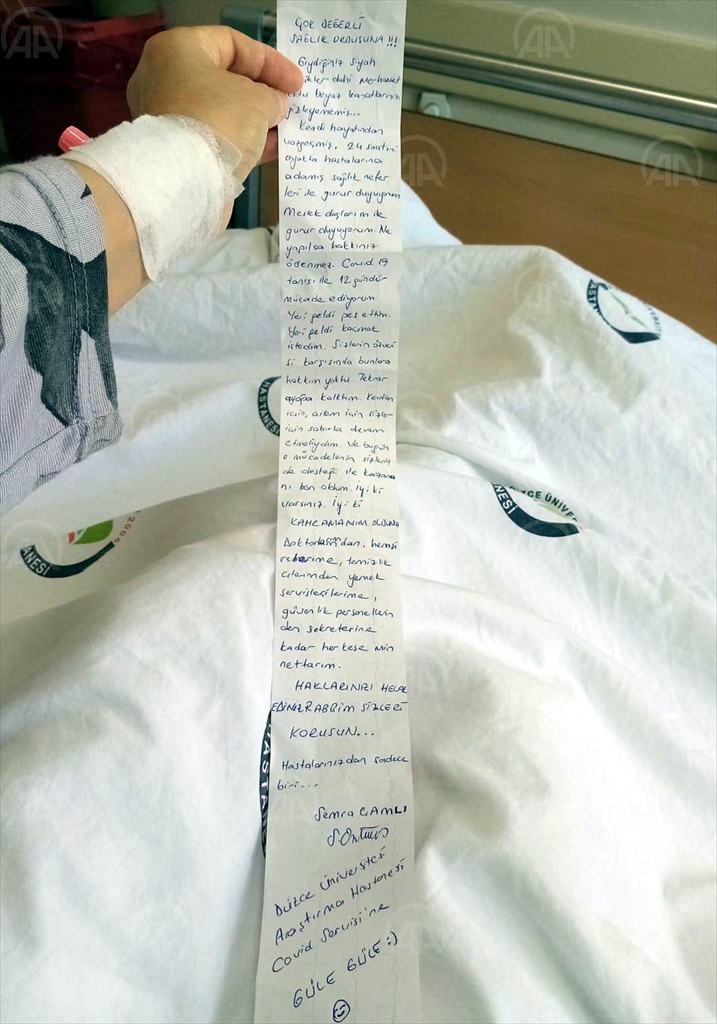 ÇOK DEĞERLİ
SAĞLIK ORDUSUNA !!!
Giydiğiniz siyah
likler dahi merhamet
dolu beyaz kanatlarınızı
gizleyememiş...
Kendi hayatından
vazgeçmiş, 24 saatini
ayakta hastalarına
adamış sağlık nefer
leri ile gurur duyuyorum
Meslek daşlarım ile
gurur duyuyorum. Ne
yapılsa hakkınız
ödenmez. Covid 19
tanısı ile 12 gündür
mücade ediyorum.
Yeri geldi pes ettim.
Yeri geldi kaçmak
istedim. Sizlerin özveri
si karşısında bunlara
hakkım yoktu. Tekrar
ayağa kalktım. Kendim
için, ailem için sizler
için sabırla devam
etmeliydim. Ve bugün
o mücadelenin sizlerin
de desteği ile kazana
nı ben oldum. İyi ki
varsınız. İyi ki
KAHRAMANIM OLDUNUZ
Doktorlarından, hemşi
relerime, temizlik
cilerimden yemek
servisçilerime,
güvenlik personellerin
den sekreterine
kadar herkese min
nettarım.
HAKLARINIZI HELAL
EDİNİZ RABBİM SİZLERİ
KORUSUN...
Hastalarınızdan sadece
biri...
Semra ÇAMLI
Düzce Üniversitesi
Araştırma Hastanesi
Covid Servisi'ne
GÜLE GÜLE :)
HASTANESİ
HASTANESİ
DÜZCE ÜNİVER
ANESİ
TANESİ
2006
HASTAN
AA